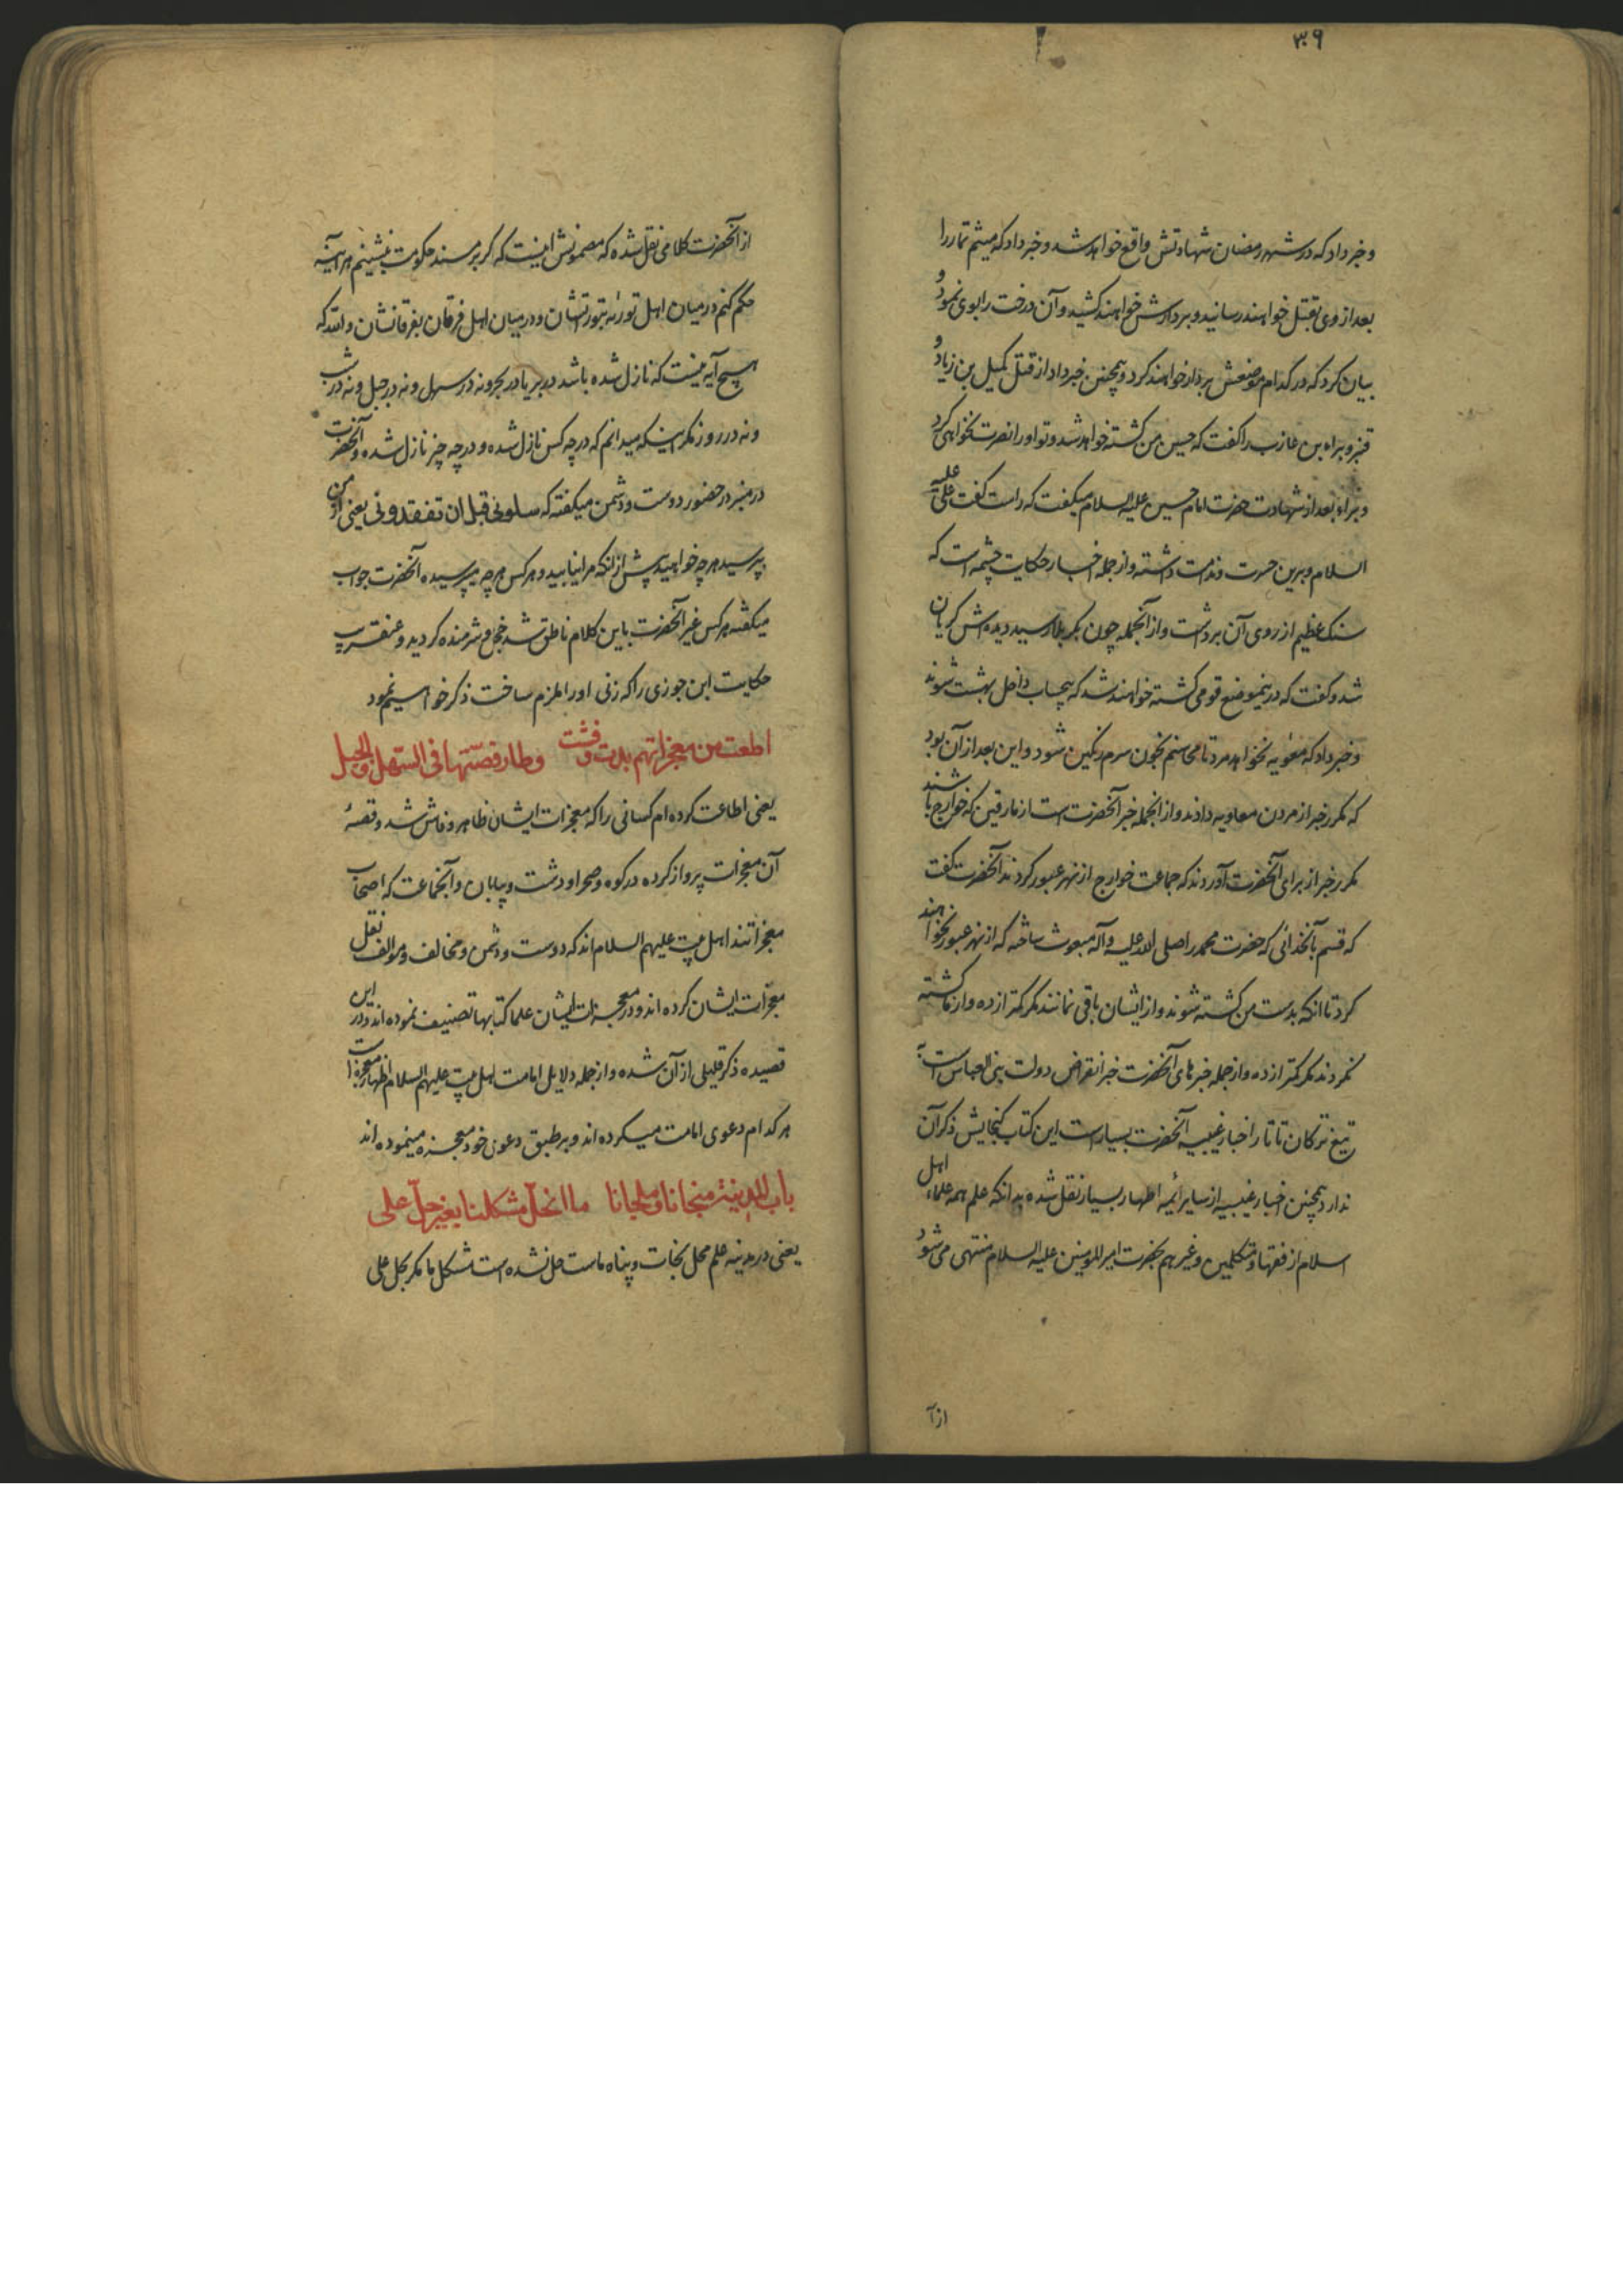 ۳۰۹
وخبر داد که در شهر رمضان شهادتش واقع خواهد شد و خبر داد که میثم تمار را
بعد از وی بقتل خواهند رسانید و بر دارش خواهند کشید و آن درخت را بوی نمود و
بیان کرد که در کدام موضعش بر دار خواهند کرد و همچنین خبر داد از قتل کمیل بن زیاد و
قنبر و براء بن عازب را گفت که حسین من کشته خواهد شد و تو او را نصرت نخواهی کرد
و براء بعد از شهادت حضرت امام حسین علیه السلام میگفت که راست گفت علی علیه
السلام و برین حسرت و ندامت داشته و از جمله اخبار حکایت چشمه است که
سنک عظیم از روی آن برداشت و از آنجمله چون بکربلا رسید دیده اش کریان
شد و گفت که درینموضع قومی کشته خواهند شد که بیحساب داخل بهشت شوند
و خبر داد که معویه نخواهد مرد تا محاسنم بخون سرم رنکین شود و این بعد از آن بود
که مکرر خبر از مردن معاویه دادند و از انجمله خبر آنحضرت است از مارقین که خوارج باشند
مکرر خبر از برای آنحضرت آوردند که جماعت خوارج از نهر عبور کردند آنحضرت گفت
که قسم بآنخدائی که حضرت محمد را صلی الله علیه وآله مبعوث ساخته که از نهر عبور نخواهند
کرد تا انکه بدست من کشته شوند و از ایشان باقی نمانند مکر کمتر از ده و از ما کشته
نکردند مکر کمتر از ده و از جمله خبرهای آنحضرت خبر انقراض دولت بنی العباس است به
تیغ ترکان تاتار اخبار غیبیه آنحضرت بسیار است این کتاب کنجایش ذکر آن
ندارد همچنین اخبار غیبیه از سایر ائمه اطهار بسیار نقل شده بدانکه علم همه علماء اهل
اسلام از فقها و متکلمین و غیرهم بحضرت امیر المومنین علیه السلام منتهی می شود
از آ
از آنحضرت کلامی نقل شده که مضمونش اینست که کر بر مسند حکومت بنشینم هر آینه
حکم کنم در میان اهل توریه بتوریتشان و در میان اهل فرقان بفرقانشان والله که
هیچ آیه نیست که نازل شده باشد در بر یا در بحر و نه در سهل و نه در جبل و نه در شب
و نه در روز مکر اینکه میدانم که در چه کس نازل شده و در چه چیز نازل شده و آنحضرت
در منبر در حضور دوست و دشمن میکفته که سلونی قبل ان تفقدونی یعنی از من
بپرسید هر چه خواهید پیش از انکه مرا نیابید و هر کس هر چه میپرسیده آنحضرت جواب
میکفته هر کس غیر آنحضرت باین کلام ناطق شد خجل و شرمنده کردید و عنقریب
حکایت ابن جوزی را که زنی او را ملزم ساخت ذکر خواهیم نمود
اطعت من معجزاتهم بدت وفشت وطار قصتها فی السهل والجبل
یعنی اطاعت کرده ام کسانی را که معجزات ایشان ظاهر و فاش شد و قصه
آن معجزات پرواز کرده در کوه و صحرا و دشت و بیابان و آنجماعت که اصحاب
معجزاتند اهل بیت علیهم السلام اند که دوست و دشمن و مخالف و موالف نقل
معجزات ایشان کرده اند و در معجزات ایشان علما کتابها تصنیف نموده اند و در این
قصیده ذکر قلیلی از آن شده و از جمله دلایل امامت اهل بیت علیهم السلام اظهار معجزات
هر کدام دعوی امامت میکرده اند و بر طبق دعوی خود معجزه مینموده اند
باب المدینة منجانا وملجانا ما انحل مشکلنا بغیر حل علی
یعنی در مدینه علم محل نجات و پناه ماست حل نشده است مشکل ما مکر بحل علی